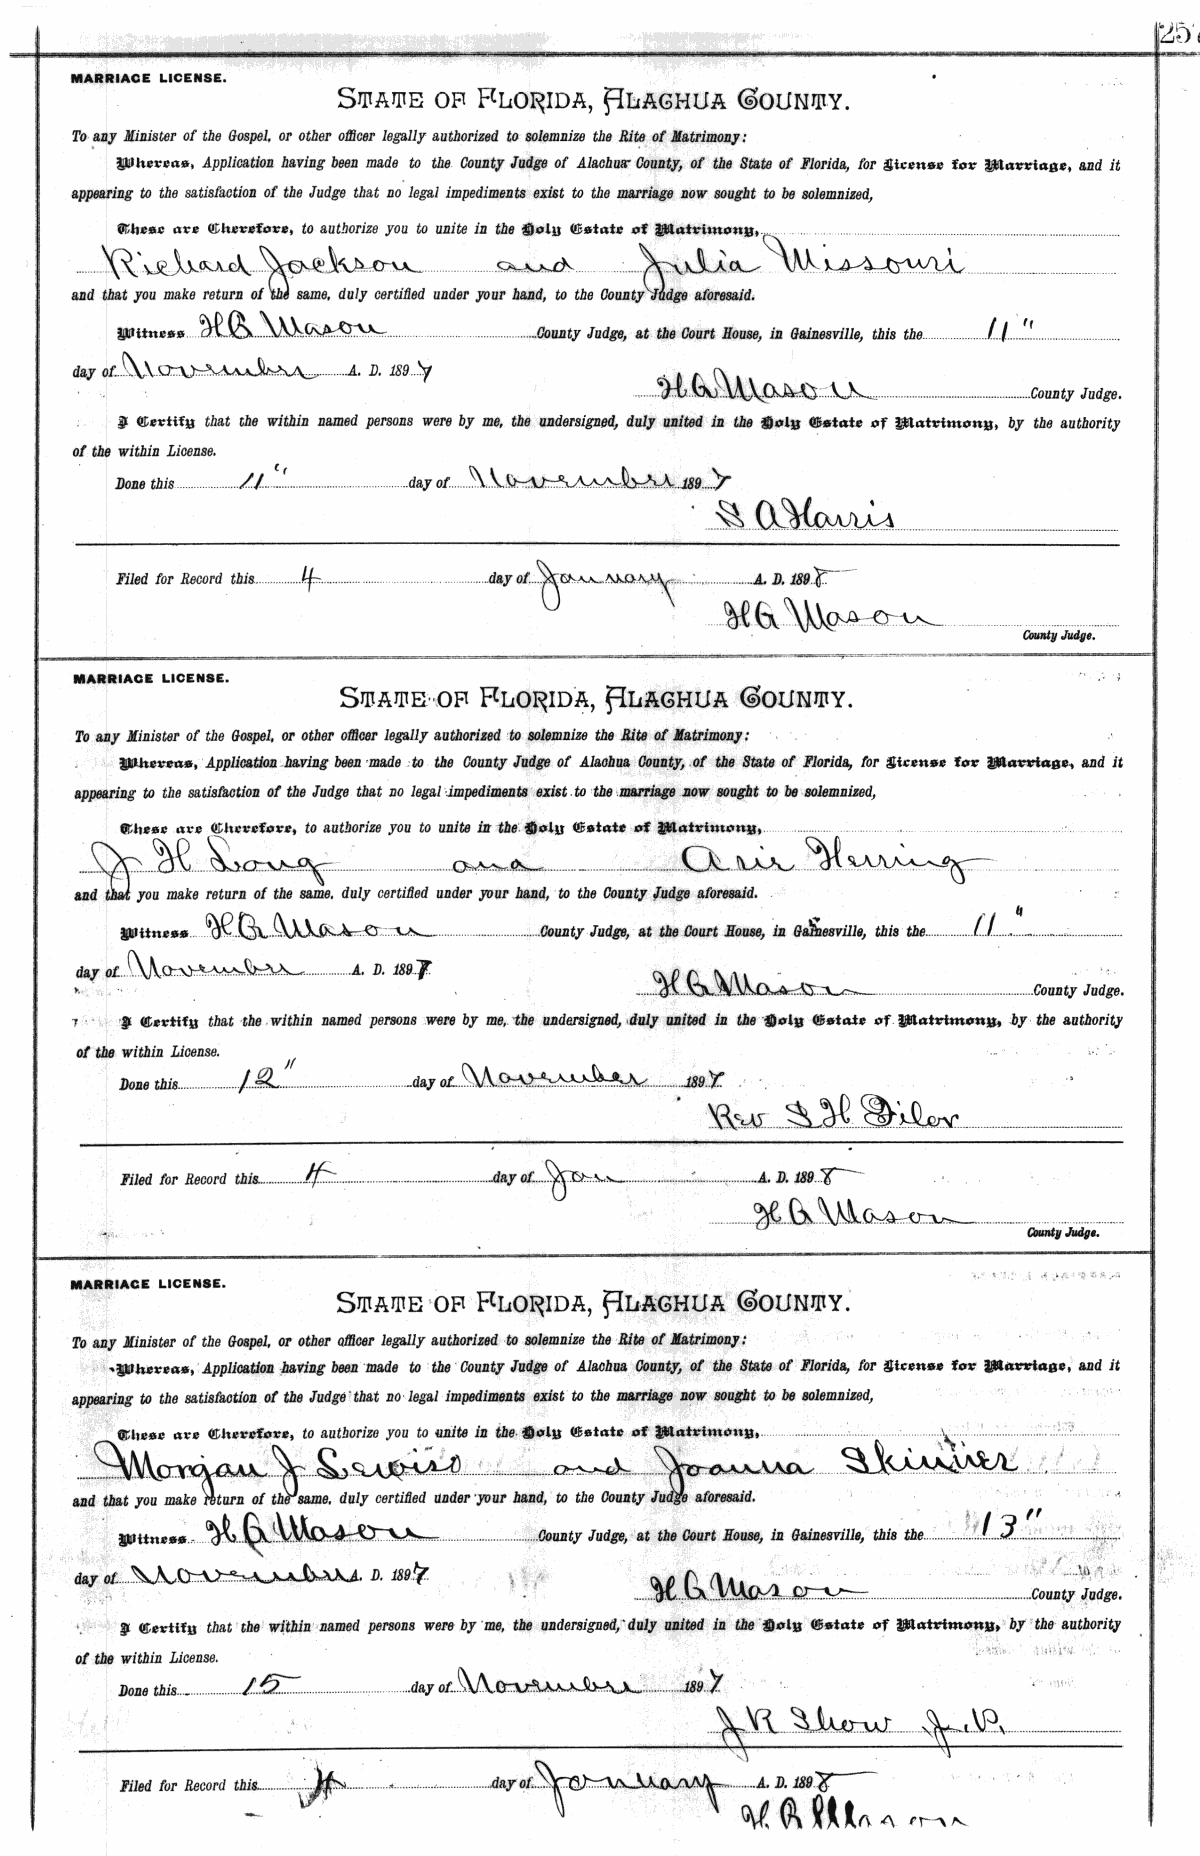 257
MARRIAGE LICENSE.
STATE OF FLORIDA, ALACHUA COUNTY.
To any Minister of the Gospel, or other officer legally authorized to solemnize the Rite of Matrimony:
Whereas, Application having been made to the County Judge of Alachua County, of the State of Florida, for License for Marriage, and it
appearing to the satisfaction of the Judge that no legal impediments exist to the marriage now sought to be solemnized,
These are Therefore, to authorize you to unite in the Holy Estate of Matrimony,
Richard Jackson and Julia Missouri
and that you make return of the same, duly certified under your hand, to the County Judge aforesaid.
Witness H G Mason County Judge, at the Court House, in Gainesville, this the 11"
day of November A. D. 1897
H G Mason County Judge.
I Certify that the within named persons were by me, the undersigned, duly united in the Holy Estate of Matrimony, by the authority
of the within License.
Done this 11" day of November 1897
S A Harris
Filed for Record this 4 day of January A. D. 1898
H G Mason
County Judge.
MARRIAGE LICENSE.
STATE OF FLORIDA, ALACHUA COUNTY.
To any Minister of the Gospel, or other officer legally authorized to solemnize the Rite of Matrimony:
Whereas, Application having been made to the County Judge of Alachua County, of the State of Florida, for License for Marriage, and it
appearing to the satisfaction of the Judge that no legal impediments exist to the marriage now sought to be solemnized,
These are Therefore, to authorize you to unite in the Holy Estate of Matrimony,
J H Long and Herring
and that you make return of the same, duly certified under your hand, to the County Judge aforesaid.
Witness H G Mason County Judge, at the Court House, in Gainesville, this the 11"
day of November A. D. 1897
H G Mason County Judge.
I Certify that the within named persons were by me, the undersigned, duly united in the Holy Estate of Matrimony, by the authority
of the within License.
Done this 12" day of November 1897
Rev S H
Filed for Record this 4 day of Jan A. D. 1898
H G Mason
County Judge.
MARRIAGE LICENSE.
STATE OF FLORIDA, ALACHUA COUNTY.
To any Minister of the Gospel, or other officer legally authorized to solemnize the Rite of Matrimony:
Whereas, Application having been made to the County Judge of Alachua County, of the State of Florida, for License for Marriage, and it
appearing to the satisfaction of the Judge that no legal impediments exist to the marriage now sought to be solemnized,
These are Therefore, to authorize you to unite in the Holy Estate of Matrimony,
Morgan J and Joanna Skinner
and that you make return of the same, duly certified under your hand, to the County Judge aforesaid.
Witness H G Mason County Judge, at the Court House, in Gainesville, this the 13"
day of November A. D. 1897
H G Mason County Judge.
I Certify that the within named persons were by me, the undersigned, duly united in the Holy Estate of Matrimony, by the authority
of the within License.
Done this 15 day of November 1897
J R Show J.P.
Filed for Record this 4 day of January A. D. 1898
H. G Mason